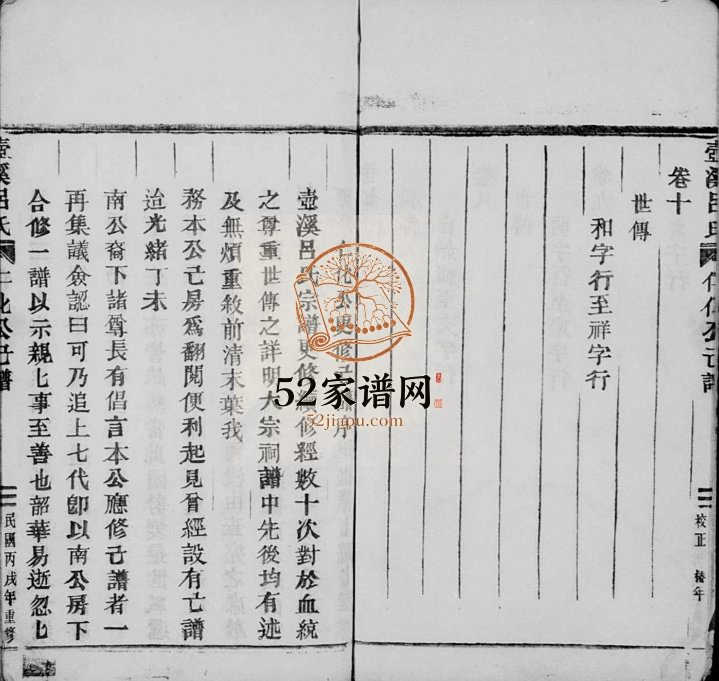 卷十
世傳
和字行至祥字行
校正 椿年
仁化公更修己譜序
壺溪呂氏宗譜更修經數十次對於血統
之尊重世傳之詳明大宗祠譜中先後均有述
及無煩重敘前清末葉我
務本公己房爲翻閱便利起見曾經設有亡譜
迨光緒丁未
南公裔下諸尊長有倡言本公應修己譜者一
再集議僉認曰可乃追上七代卽以南公房下
合修一譜以示親匕事至善也韶華易逝忽匕
壺溪呂氏 仁化公己譜
民國丙戌年重修
52家谱网
52jiapu.com